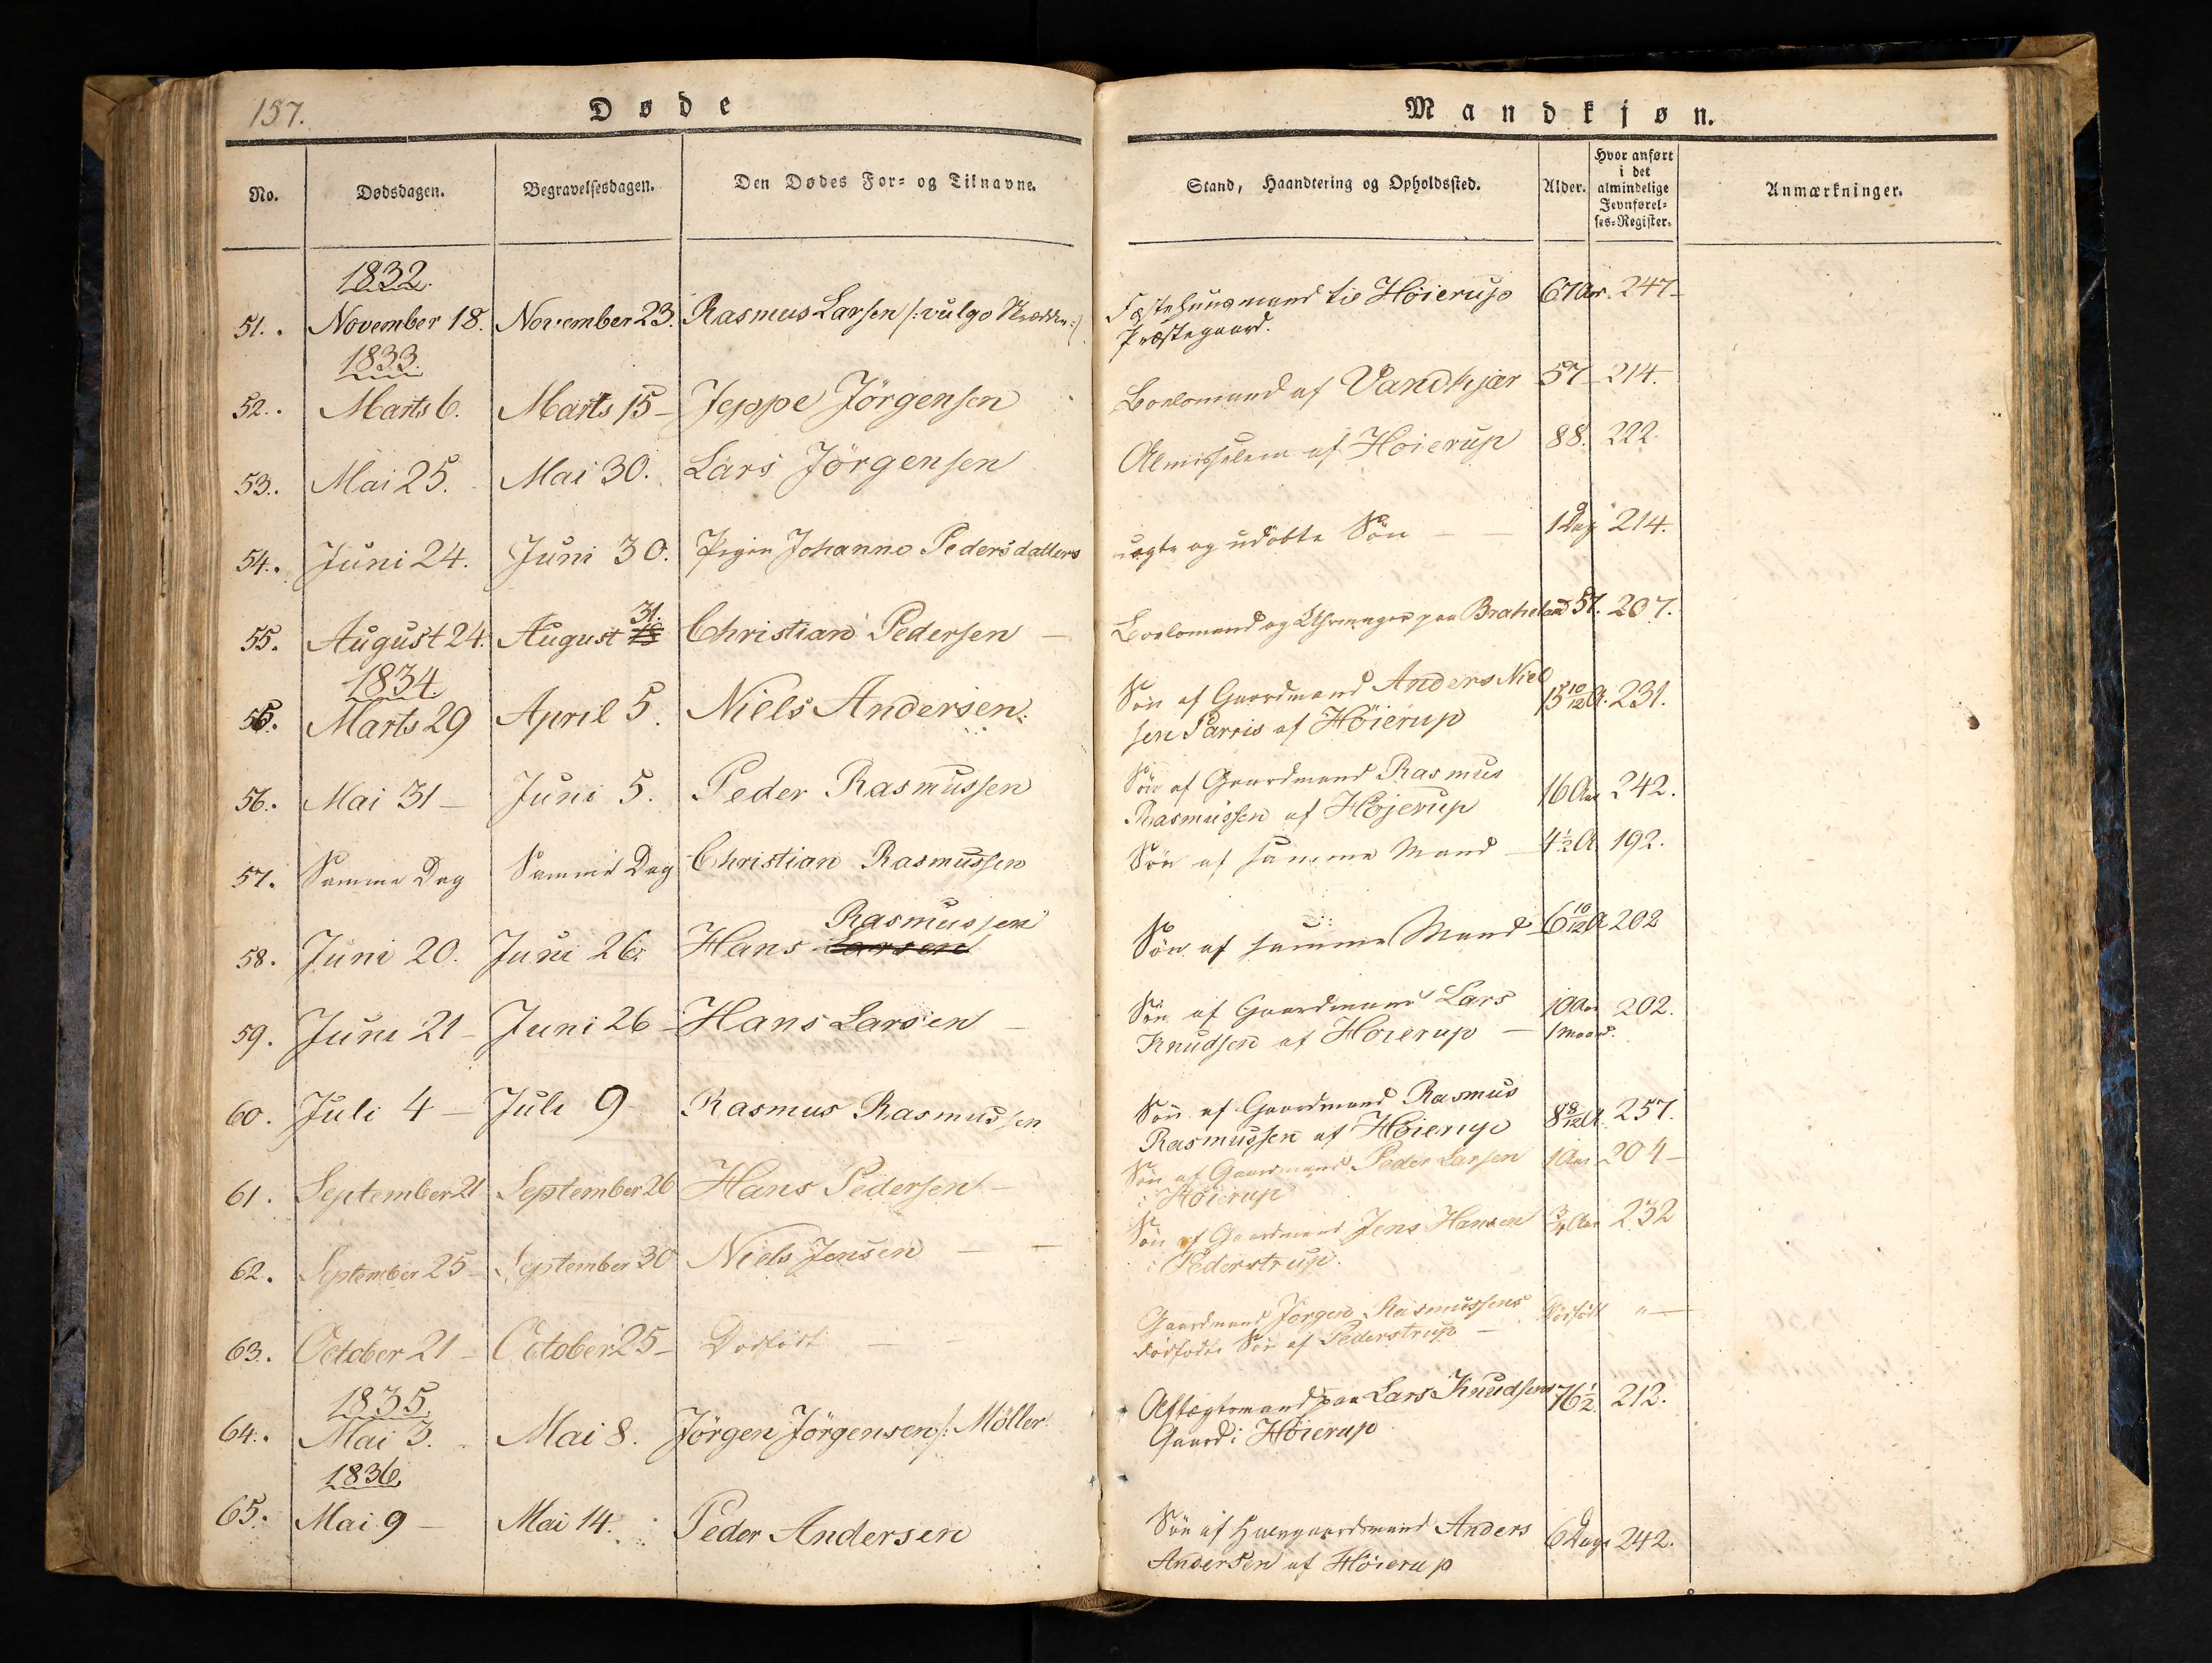 157.
Døde
Mandkjøn.
No.
Dødsdagen.
Begravelsesdagen.
Den Dødes For- og Tilnavne.
Stand, Haandtering og Opholdssted.
Alder.
Hvor anført
i det
almindelige
Jevnførel-
ses-Register.
Anmærkninger.
1832.
51. November 18. November 23. Rasmus Larsen /: vulgo Skrædder :/ Fæstehuusmand til Höierup 67 Aar. 247-
Præstegaard.
1833.
52. Marts 6. Marts 15- Jeppe Jörgensen Boelsmand af Vandkjær 57- 214.
53. Mai 25. Mai 30. Lars Jörgensen Almisselem af Höierup 88. 222.
54. Juni 24. Juni 30. Pigen Johanne Pedersdatters uægte og udöbte Sön - - 1 Dag 214.
31.
55. August 24. August 18 Christian Pedersen - Boelsmand og Uhrmager paa Braheland 57. 207.
1834.
56. Marts 29 April 5. Niels Andersen. Sön af Gaardmand Anders Niel
sen Parris af Höierup 15 10/12 A. 231.
56. Mai 31- Juni 5. Peder Rasmussen Sön af Gaardmand Rasmus
Rasmussen af Höjerup 16 Aar 242.
57. Samme Dag Samme Dag Christian Rasmussen Sön af samme Mand - 4 1/2 A 192.
Rasmussen
58. Juni 20. Juni 26. Hans Larsen Sön af samme Mand - 6 10/12 A 202
59. Juni 21- Juni 26- Hans Larsen - Sön af Gaardmand Lars 10 Aar 202.
Knudsen af Höierup - 1 Maaned.
60. Juli 4- Juli 9 Rasmus Rasmussen Sön af Gaardmand Rasmus
Rasmussen af Höierup 8 8/12 A. 257.
61. September 21 September 26 Hans Pedersen - Sön af Gaardmand Peder Larsen 1 Aar 204-
i Höierup
62. September 25- September 30 Niels Jensen - - Sön af Gaardmand Jens Hansen 3/4 Aar 232
i Pederstrup.
63. October 21- October 25- Dödfödt - - Gaardmand Jörgen Rasmussens Dödfödt " -
dödfödte Sön af Pederstrup -
1835.
64. Mai 3. Mai 8. Jörgen Jörgensen /: Möller Aftægtsmand paa Lars Knudsens 76 1/2. 212.
Gaard i Höierup
1836.
65. Mai 9- Mai 14. Peder Andersen Sön af Halvgaardmand Anders 6 Dage 242.
Andersen af Höierup